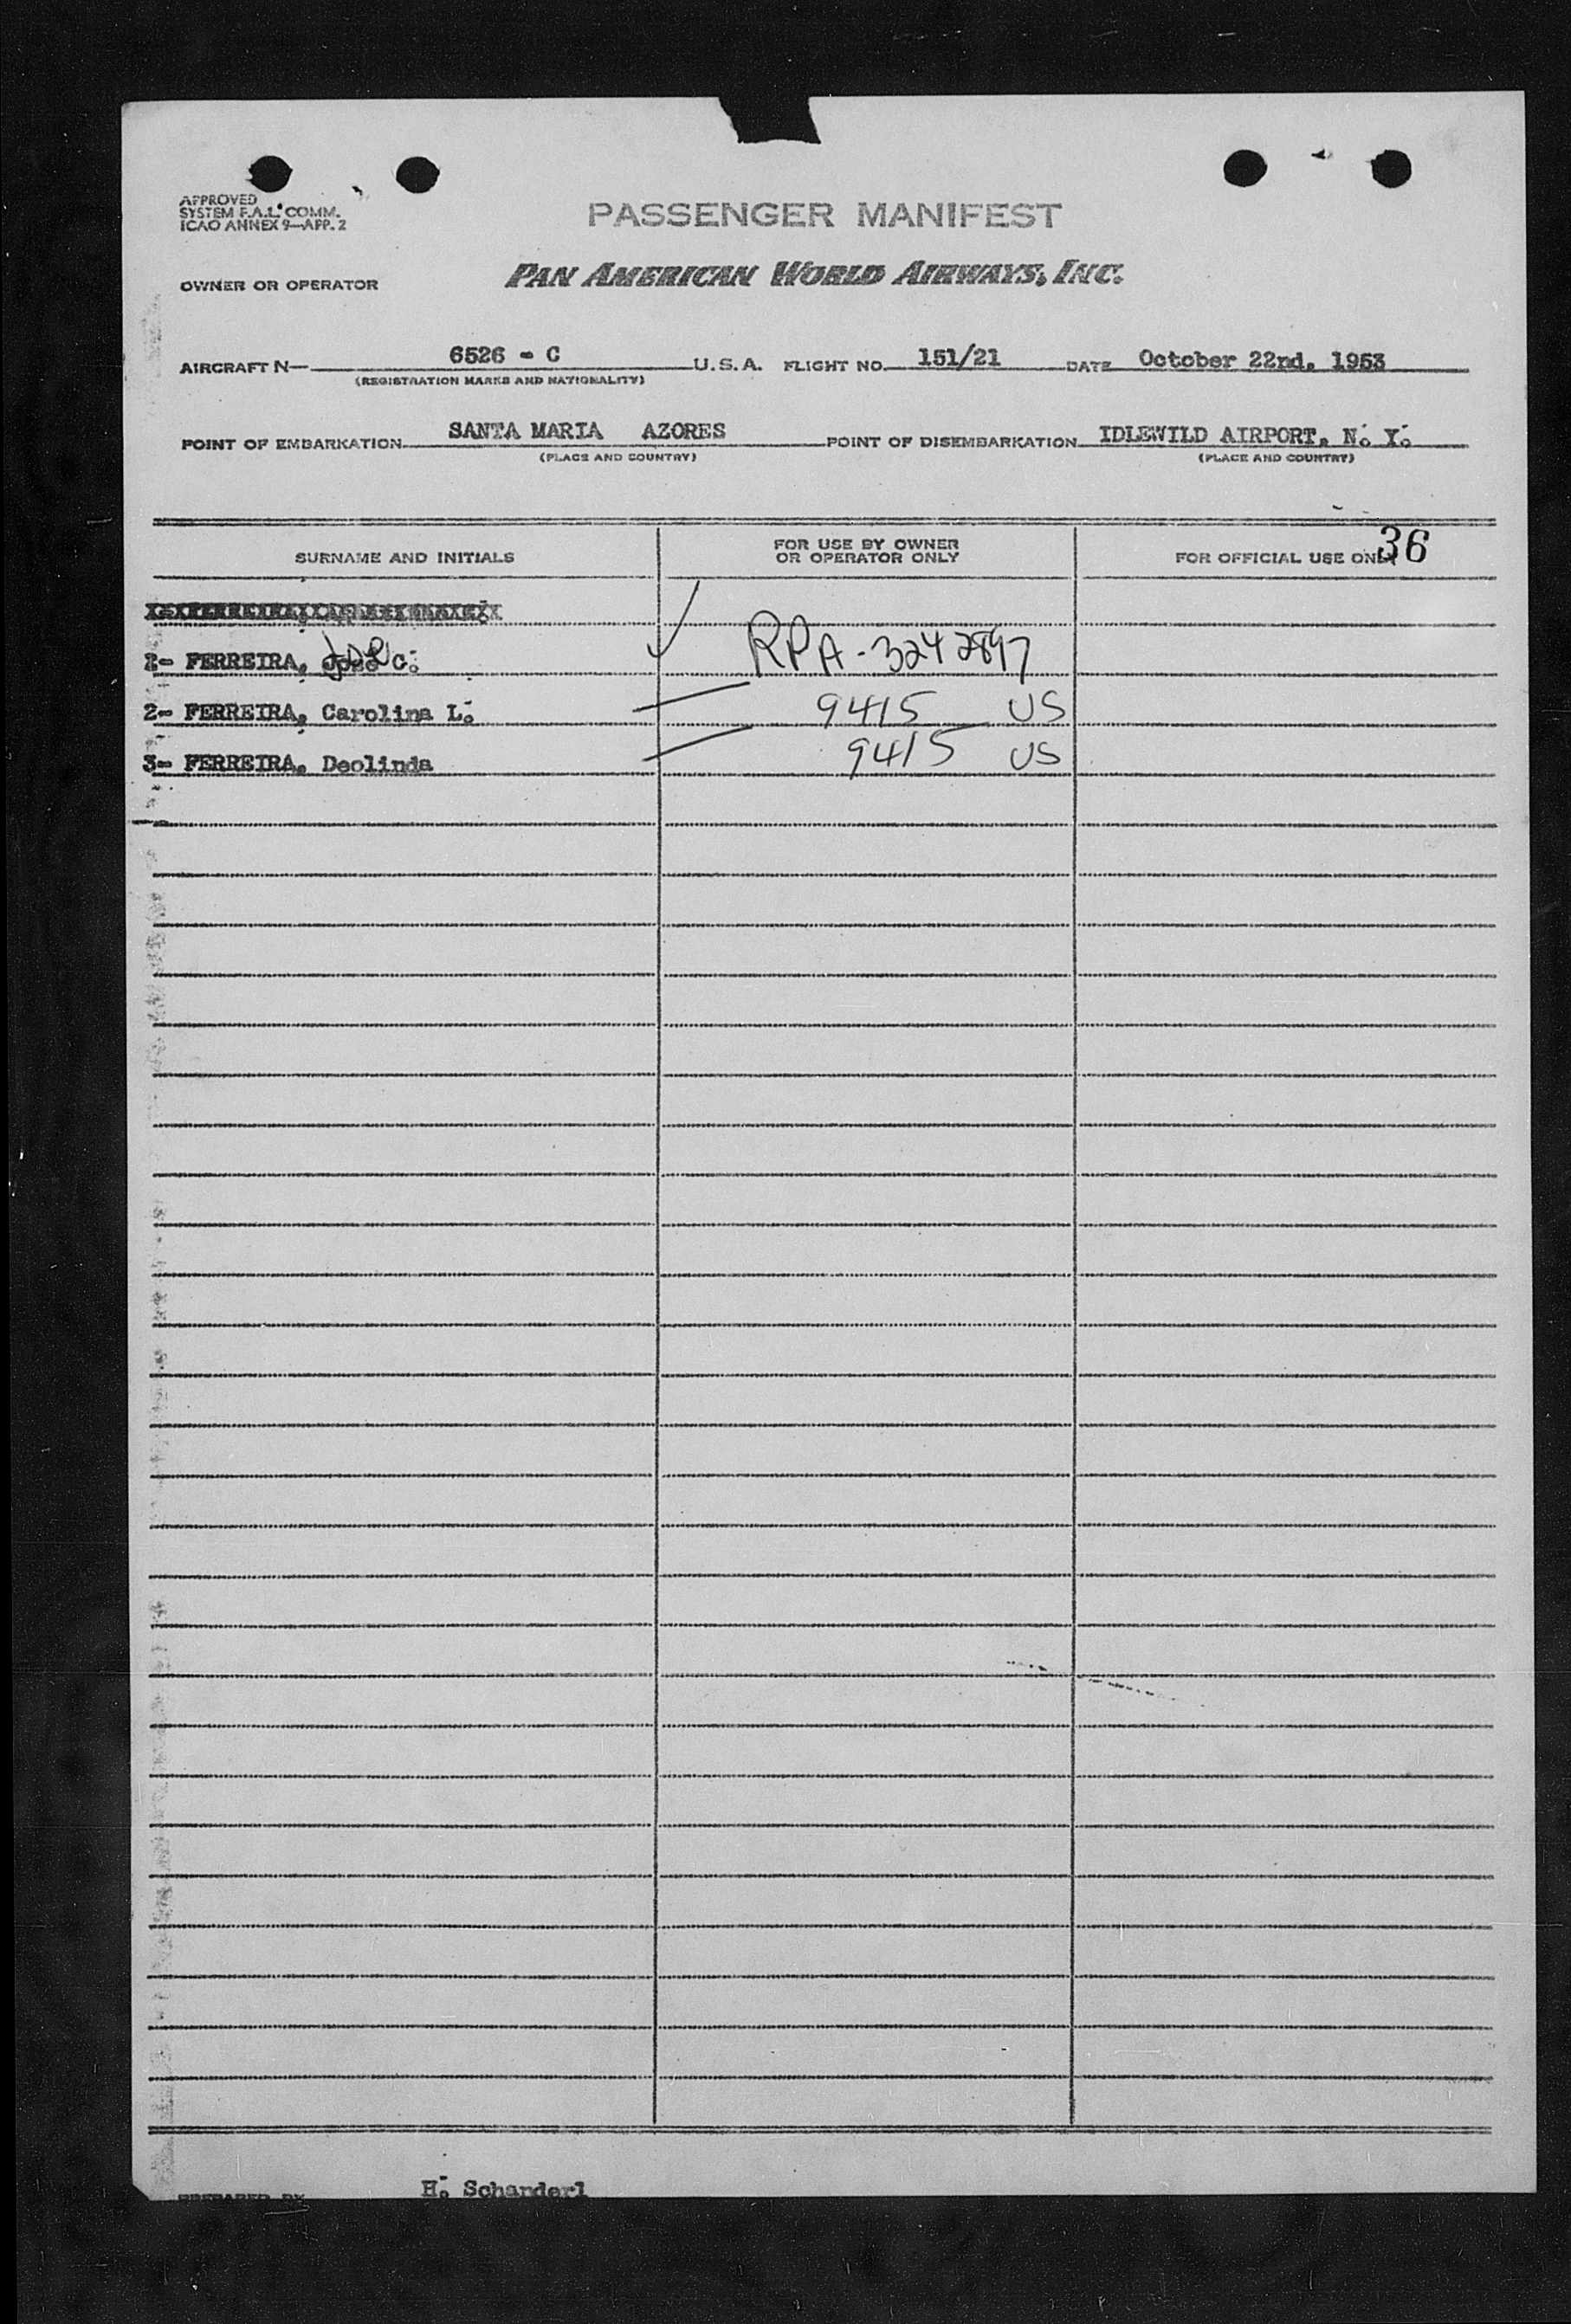 APPROVED
SYSTEM F.A.L. COMM.
ICAO ANNEX 9—APP. 2
PASSENGER MANIFEST
OWNER OR OPERATOR PAN AMERICAN WORLD AIRWAYS, INC.
AIRCRAFT N— 6526 - C U.S.A. FLIGHT NO. 151/21 DATE October 22nd. 1953
(REGISTRATION MARKS AND NATIONALITY)
POINT OF EMBARKATION SANTA MARIA AZORES POINT OF DISEMBARKATION IDLEWILD AIRPORT. N. Y.
(PLACE AND COUNTRY) (PLACE AND COUNTRY)
SURNAME AND INITIALS FOR USE BY OWNER OR OPERATOR ONLY FOR OFFICIAL USE ONLY 36
FERREIRA, C. RPA-3242897
2- FERREIRA, Carolina L. 9415 US
3- FERREIRA, Deolinda 9415 US
PREPARED BY H. Schanderl